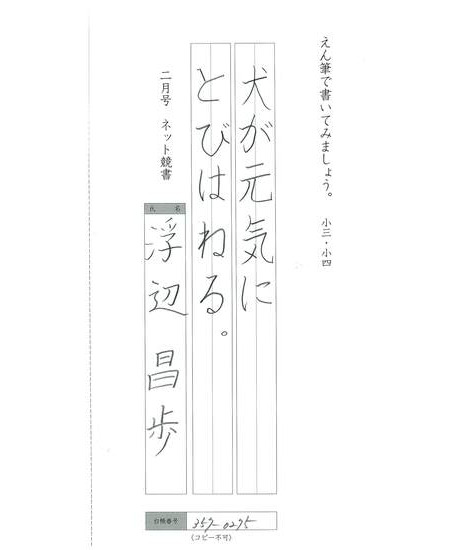 えん筆で書いてみましょう。 小三・小四
犬が元気に
とびはねる。
二月号 ネット競書
氏名
浮辺 昌歩
台帳番号 359-0295
(コピー不可)